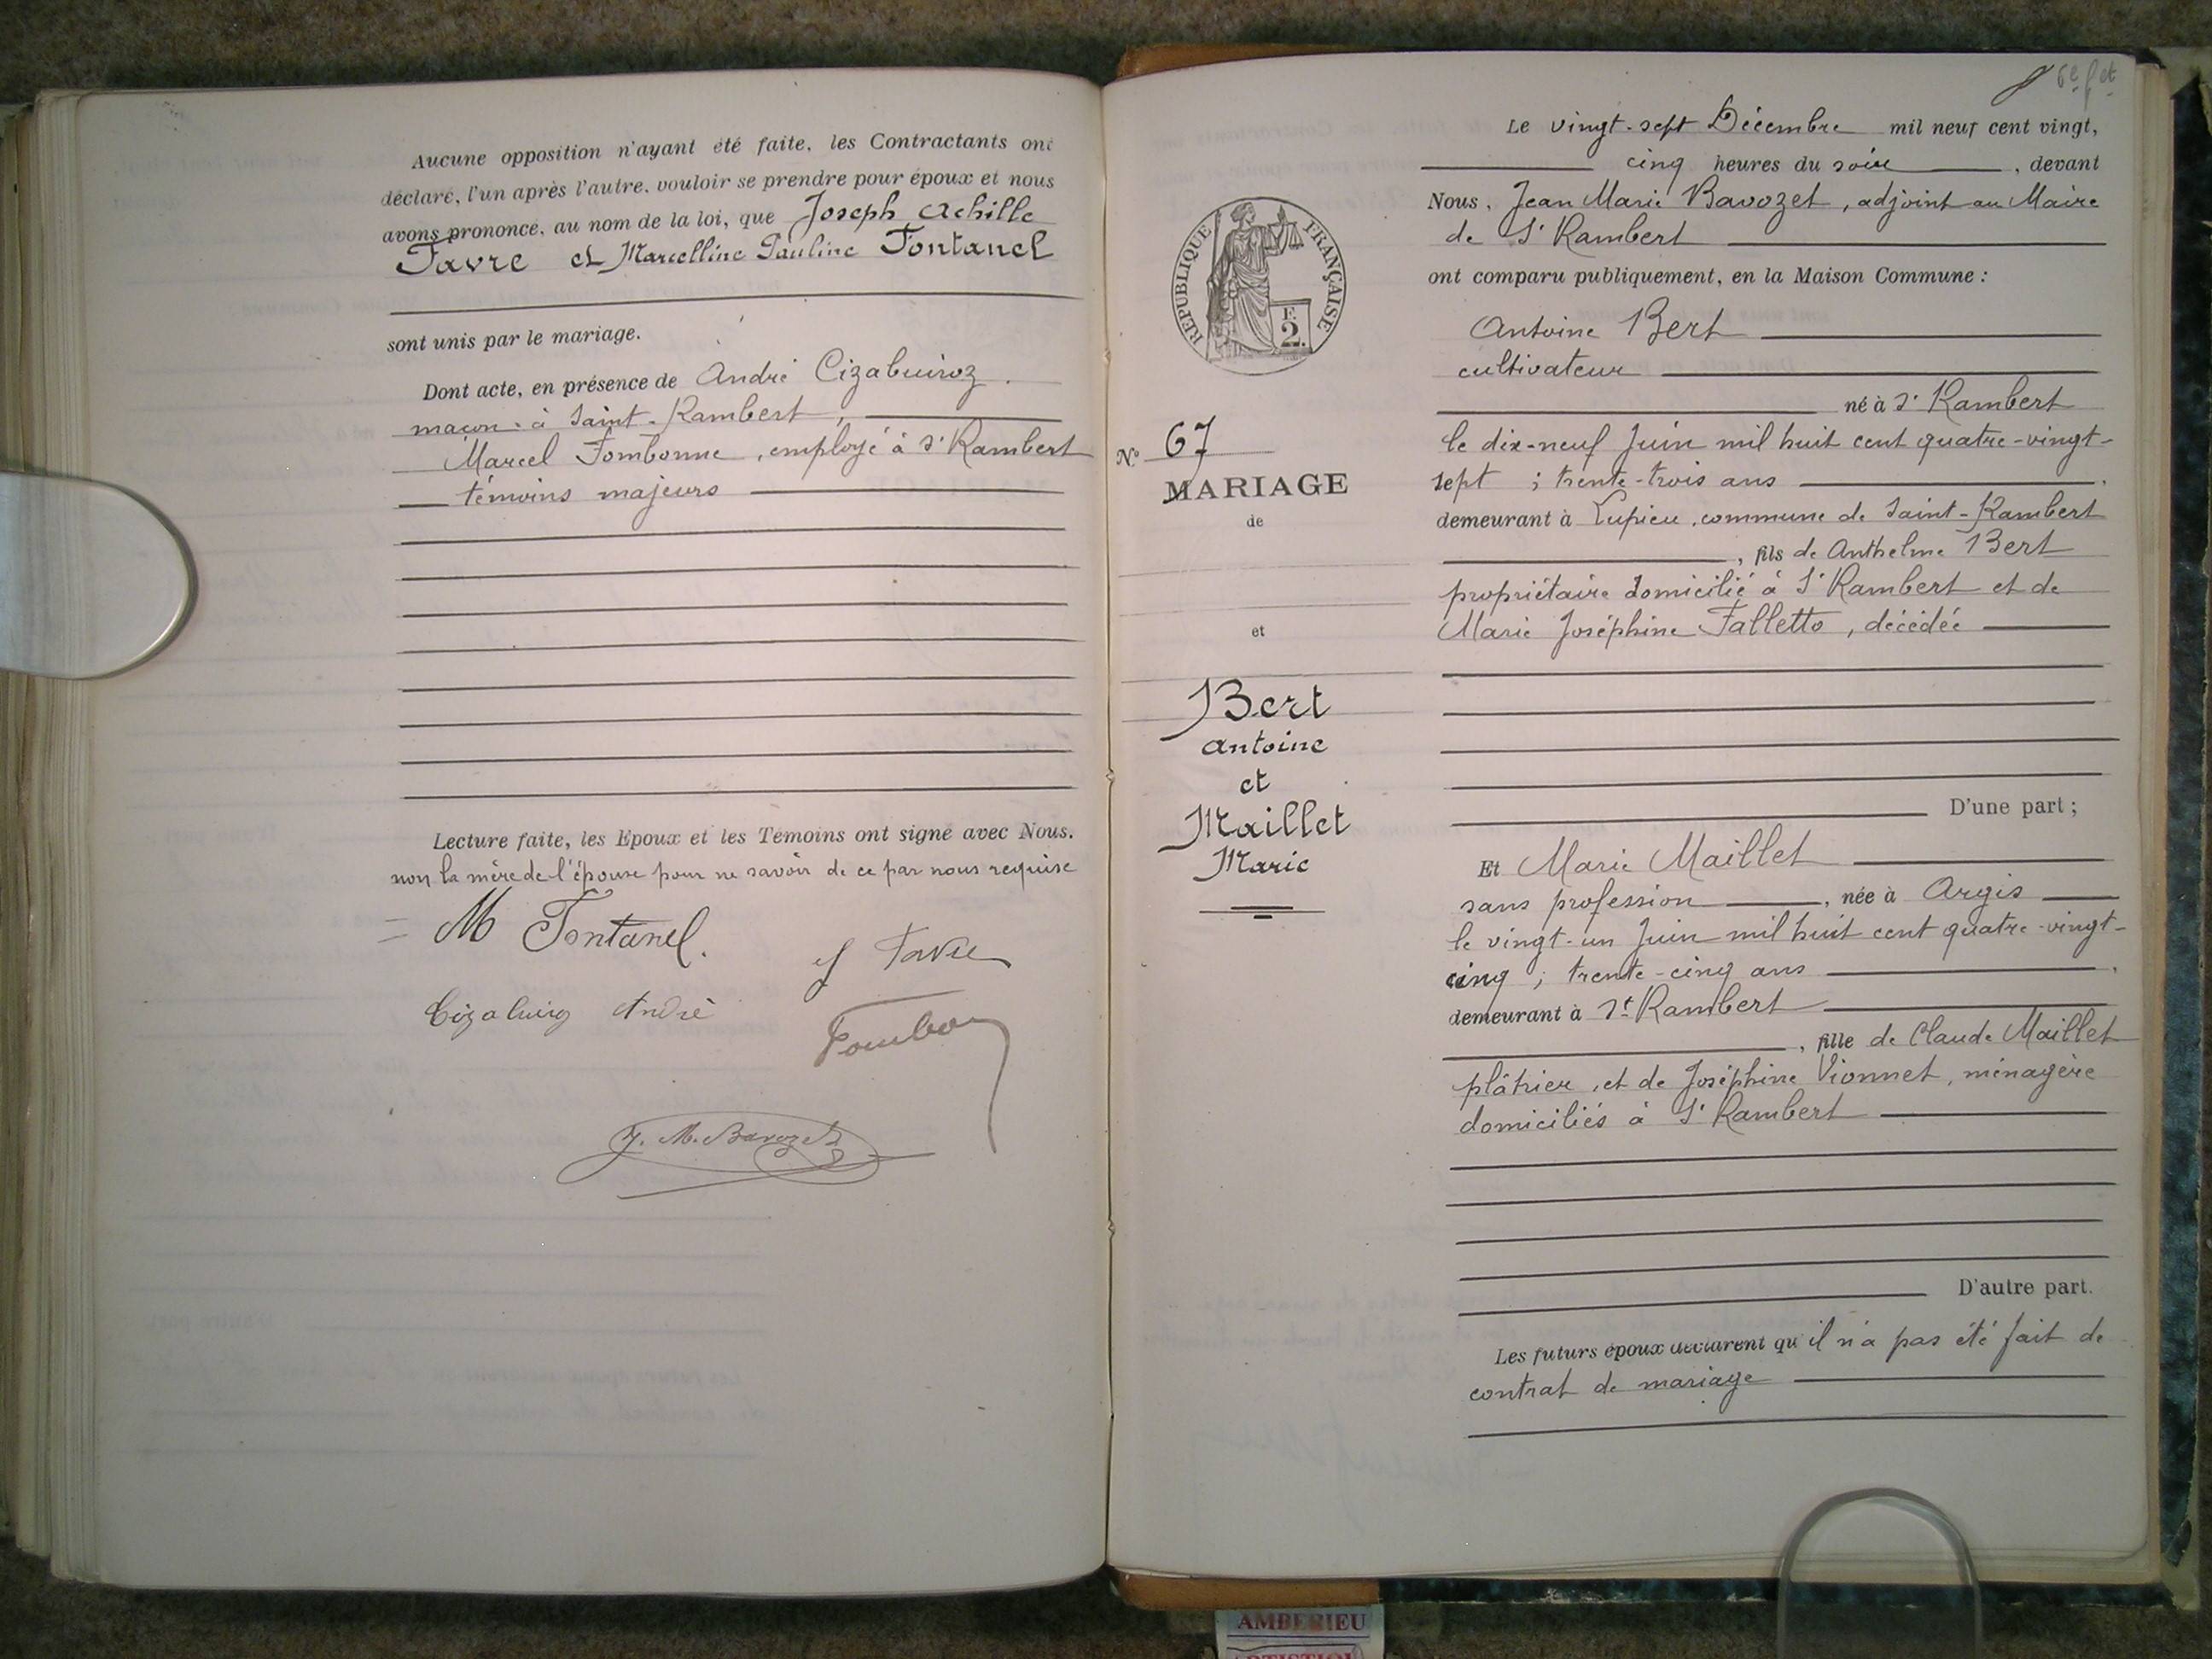 Aucune opposition n'ayant été faite, les Contractants ont
déclaré, l'un après l'autre, vouloir se prendre pour époux et nous
avons prononcé, au nom de la loi, que Joseph Achille
Favre et Marcelline Pauline Fontanel
sont unis par le mariage.
Dont acte, en présence de André Cizabuiroz
maçon à Saint-Rambert,
Marcel Fombonne, employé à St Rambert
témoins majeurs
Lecture faite, les Epoux et les Témoins ont signé avec Nous.
non la mère de l'épouse pour ne savoir de ce par nous requise
M Fontanel.
J Favre
André
J. M. Bavozet
RÉPUBLIQUE FRANÇAISE
F.
2.
N° 67
MARIAGE
de
et
Bert
Antoine
et
Maillet
Marie
6e f et
Le vingt-sept Décembre mil neuf cent vingt,
cinq heures du soir, devant
Nous, Jean Marie Bavozet, adjoint au Maire
de St Rambert
ont comparu publiquement, en la Maison Commune :
Antoine Bert
cultivateur
né à St Rambert
le dix-neuf Juin mil huit cent quatre-vingt-
sept ; trente-trois ans
demeurant à Lupieu, commune de Saint-Rambert
, fils de Anthelme Bert
propriétaire domicilié à St Rambert et de
Marie Joséphine Falletto, décédée
D'une part ;
Et Marie Maillet
sans profession, née à Argis
le vingt-un Juin mil huit cent quatre-vingt-
cinq ; trente-cinq ans
demeurant à St Rambert
, fille de Claude Maillet
plâtrier, et de Joséphine Vionnet, ménagère
domiciliés à St Rambert
D'autre part.
Les futurs époux déclarent qu'il n'a pas été fait de
contrat de mariage
AMBERIEU